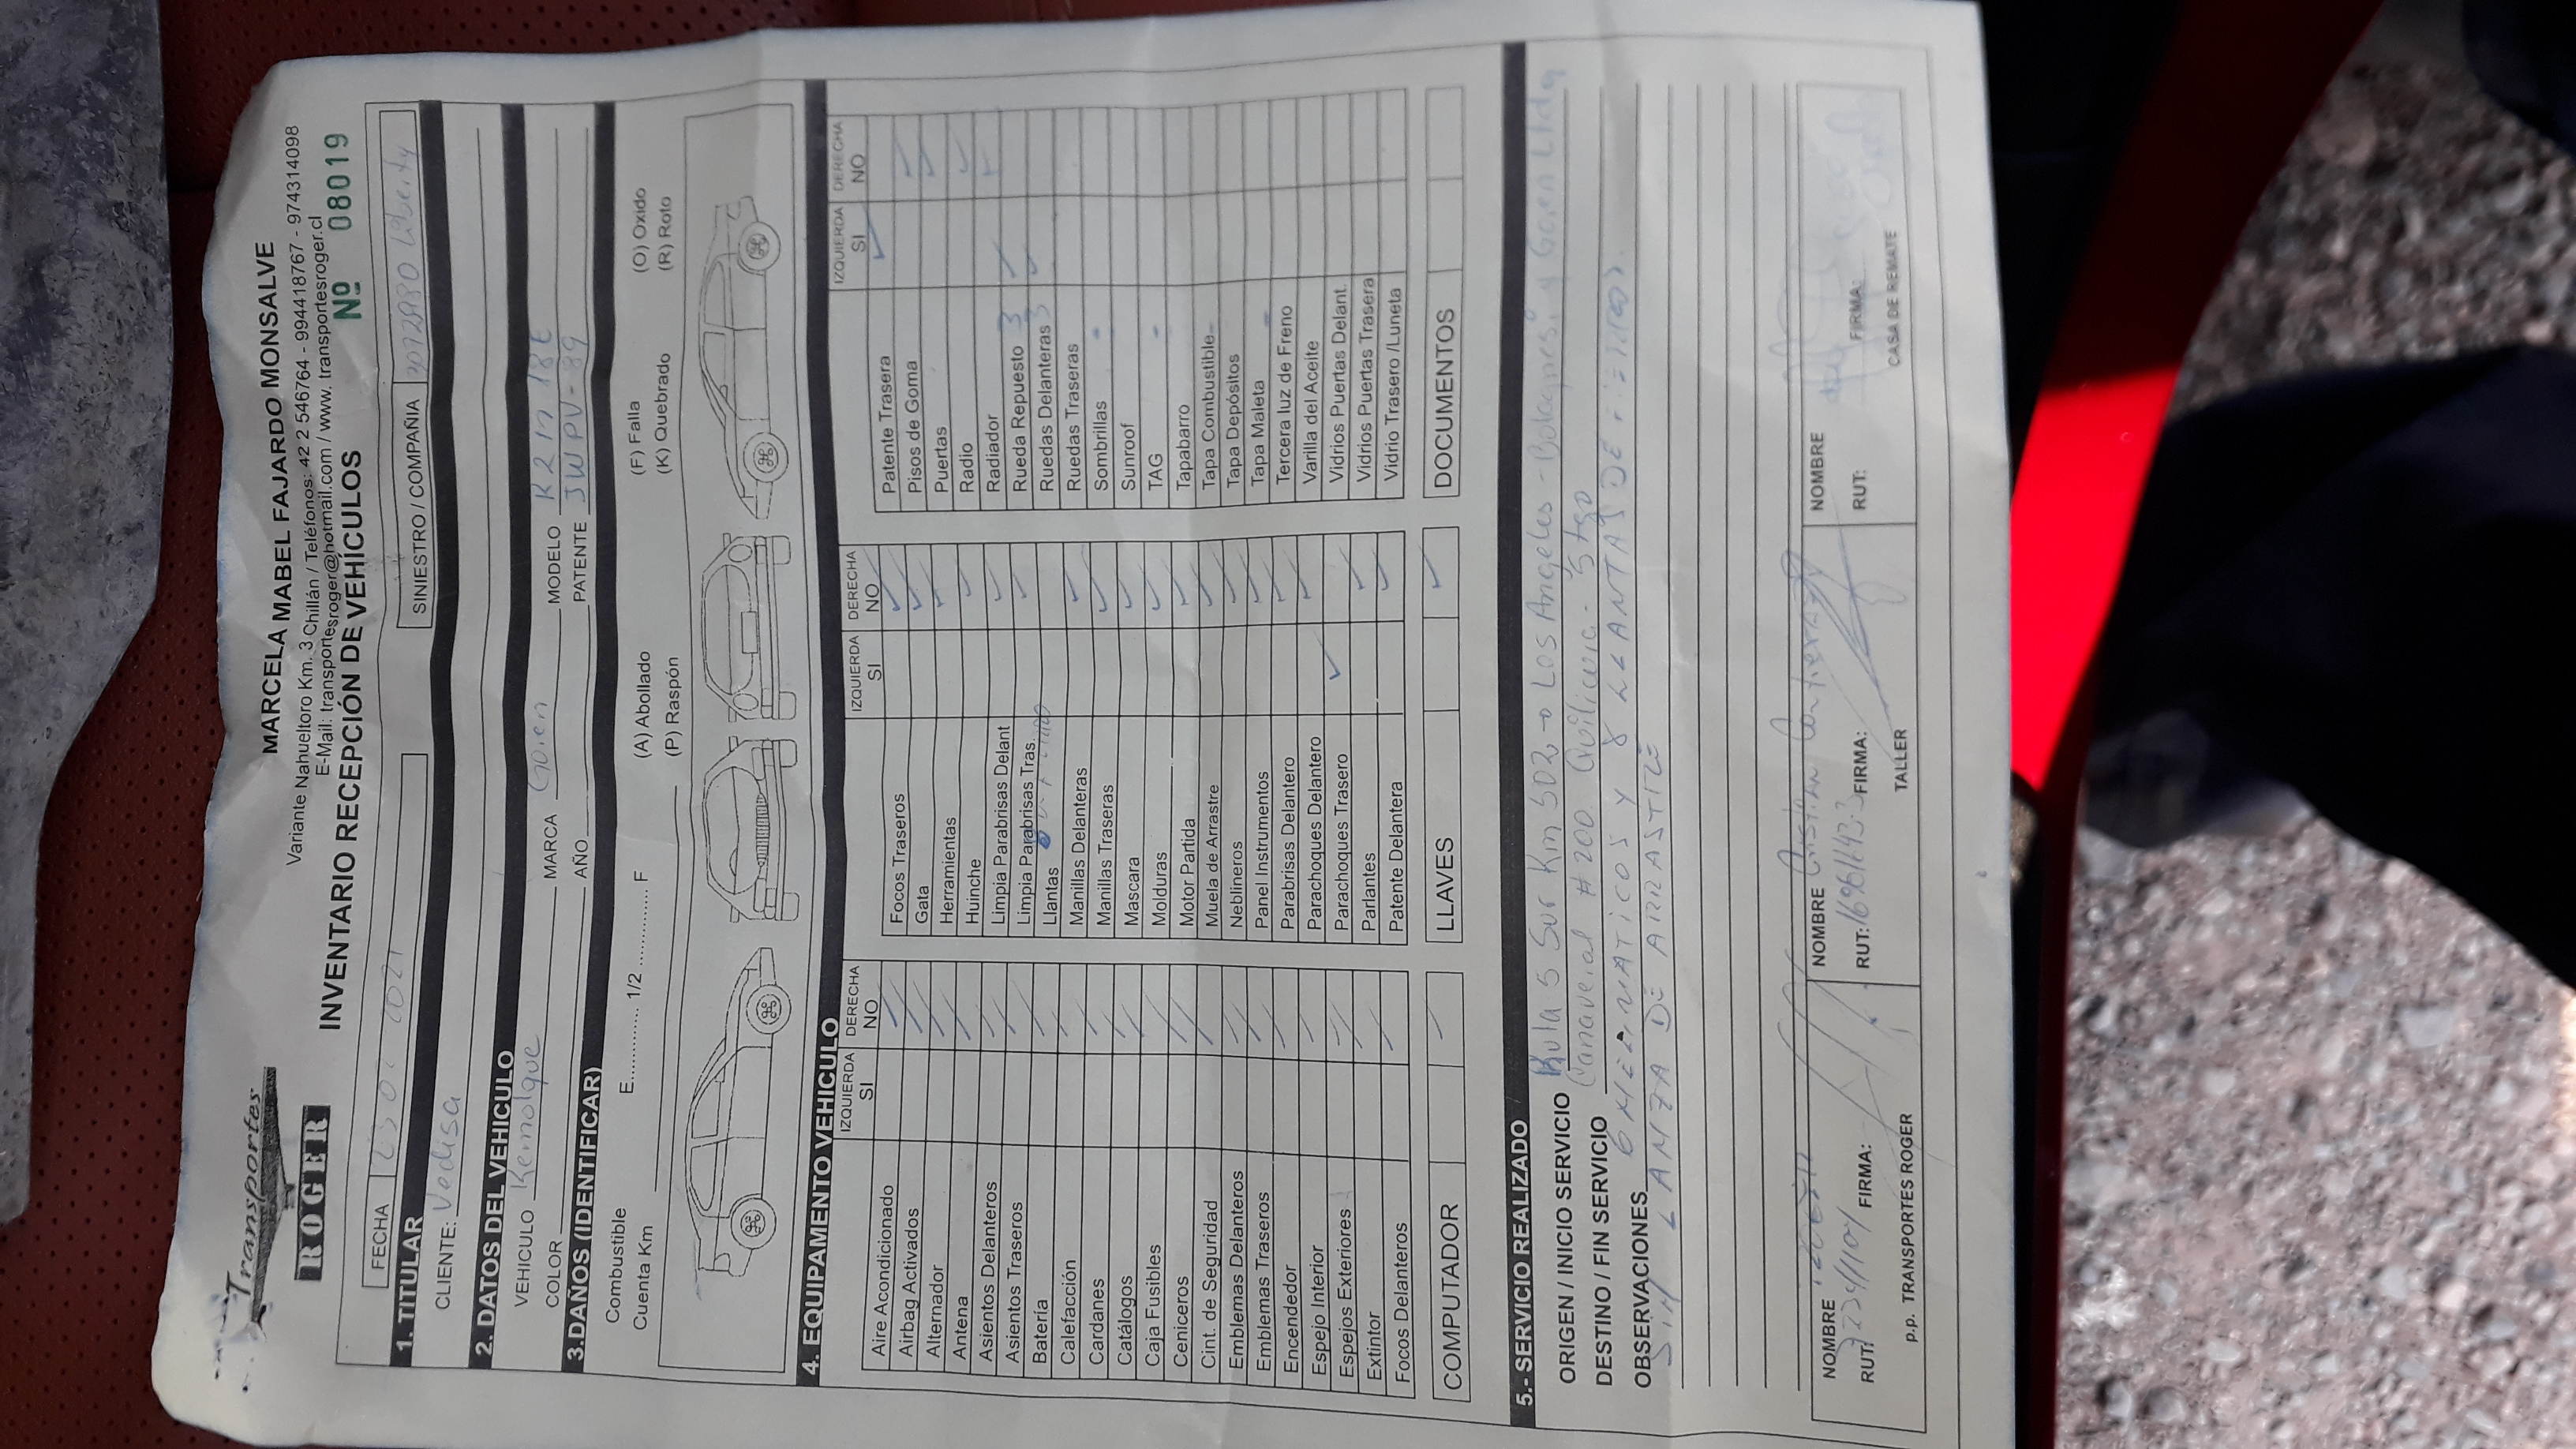 Transportes
ROGER
MARCELA MABEL FAJARDO MONSALVE
Variante Nahueltoro Km. 3 Chillán / Teléfonos: 42 2 546764 - 994418767 - 974314098
E-Mail: transportesroger@hotmail.com / www. transportesroger.cl
INVENTARIO RECEPCIÓN DE VEHÍCULOS
Nº 08019
FECHA
SINIESTRO / COMPAÑIA Liberty
1. TITULAR
CLIENTE: Vedisa
2. DATOS DEL VEHICULO
VEHICULO Remolque MARCA Goren MODELO
COLOR AÑO PATENTE JWPV-89
3.DAÑOS (IDENTIFICAR)
Combustible E............ 1/2 ............ F
Cuenta Km
(A) Abollado
(P) Raspón
(F) Falla
(K) Quebrado
(O) Oxido
(R) Roto
4. EQUIPAMIENTO VEHICULO
IZQUIERDA SI DERECHA NO
Aire Acondicionado
Airbag Activados
Alternador
Antena
Asientos Delanteros
Asientos Traseros
Batería
Calefacción
Cardanes
Catálogos
Caja Fusibles
Ceniceros
Cint. de Seguridad
Emblemas Delanteros
Emblemas Traseros
Encendedor
Espejo Interior
Espejos Exteriores
Extintor
Focos Delanteros
COMPUTADOR
IZQUIERDA SI DERECHA NO
Focos Traseros
Gata
Herramientas
Huinche
Limpia Parabrisas Delant
Limpia Parabrisas Tras.
Llantas
Manillas Delanteras
Manillas Traseras
Mascara
Molduras
Motor Partida
Muela de Arrastre
Neblineros
Panel Instrumentos
Parabrisas Delantero
Parachoques Delantero
Parachoques Trasero
Parlantes
Patente Delantera
LLAVES
IZQUIERDA SI DERECHA NO
Patente Trasera
Pisos de Goma
Puertas
Radio
Radiador
Rueda Repuesto 3
Ruedas Delanteras 3
Ruedas Traseras
Sombrillas
Sunroof
TAG
Tapabarro
Tapa Combustible
Tapa Depósitos
Tapa Maleta
Tercera luz de Freno
Varilla del Aceite
Vidrios Puertas Delant.
Vidrios Puertas Trasera
Vidrio Trasero /Luneta
DOCUMENTOS
5.- SERVICIO REALIZADO
ORIGEN / INICIO SERVICIO Ruta 5 Sur Km 502 Los Angeles - y Goren Ltda
DESTINO / FIN SERVICIO Cañaveral #200 Quilicura - Stgo
OBSERVACIONES 6 NEUMATICOS Y 8 LLANTAS DE
SIN LANZA DE ARRASTRE
NOMBRE
RUT: FIRMA:
p.p. TRANSPORTES ROGER
NOMBRE
RUT: FIRMA:
TALLER
NOMBRE
RUT: FIRMA:
CASA DE REMATE